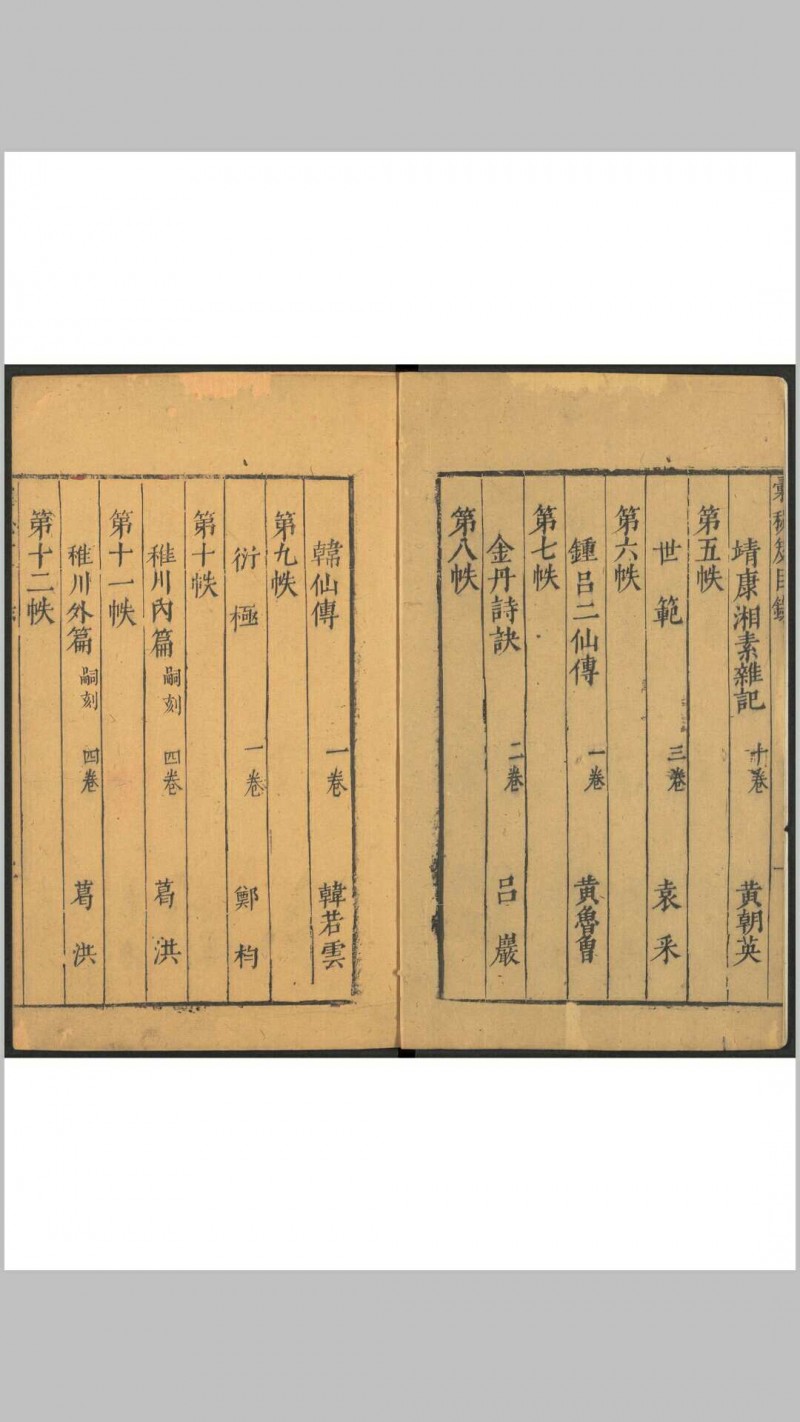 彙秘笈目錄 一
靖康湘素雜記 十卷 黃朝英
第五帙
世範 三卷 袁采
第六帙
鍾呂二仙傳 一卷 黃魯曾
第七帙
金丹詩訣 二卷 呂巖
第八帙
韓仙傳 一卷 韓若雲
第九帙
衍極 一卷 鄭枃
第十帙
稚川內篇 嗣刻 四卷 葛洪
第十一帙
稚川外篇 嗣刻 四卷 葛洪
第十二帙